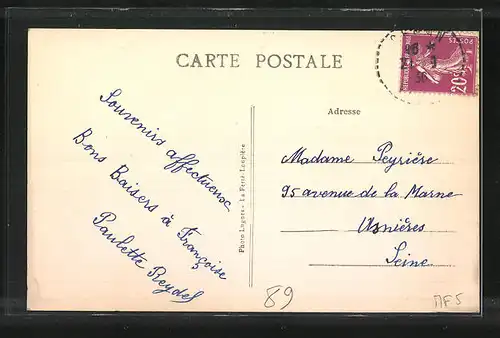 CARTE POSTALE
POSTES
20c
Adresse
Souvenirs affectueux
Bons Baisers à Françoise
Paulette Reydel
Photo Lugnès - La Ferté-Loupière
Madame Peyrière
95 avenue de la Marne
Asnières
Seine
89
MF5